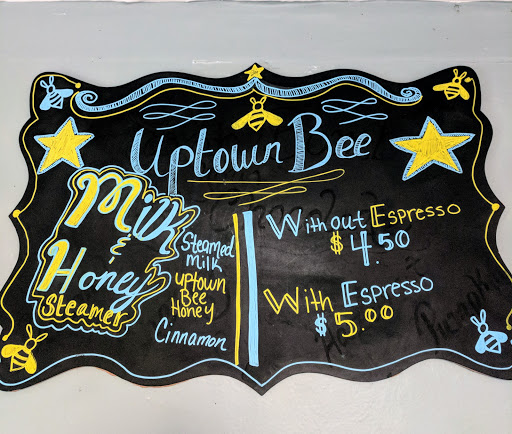 Uptown Bee
Milk
&
Honey
Steamer
Steamed
milk
uptown
Bee
Honey
Cinnamon
Without Espresso
$4.50
With Espresso
$5.00